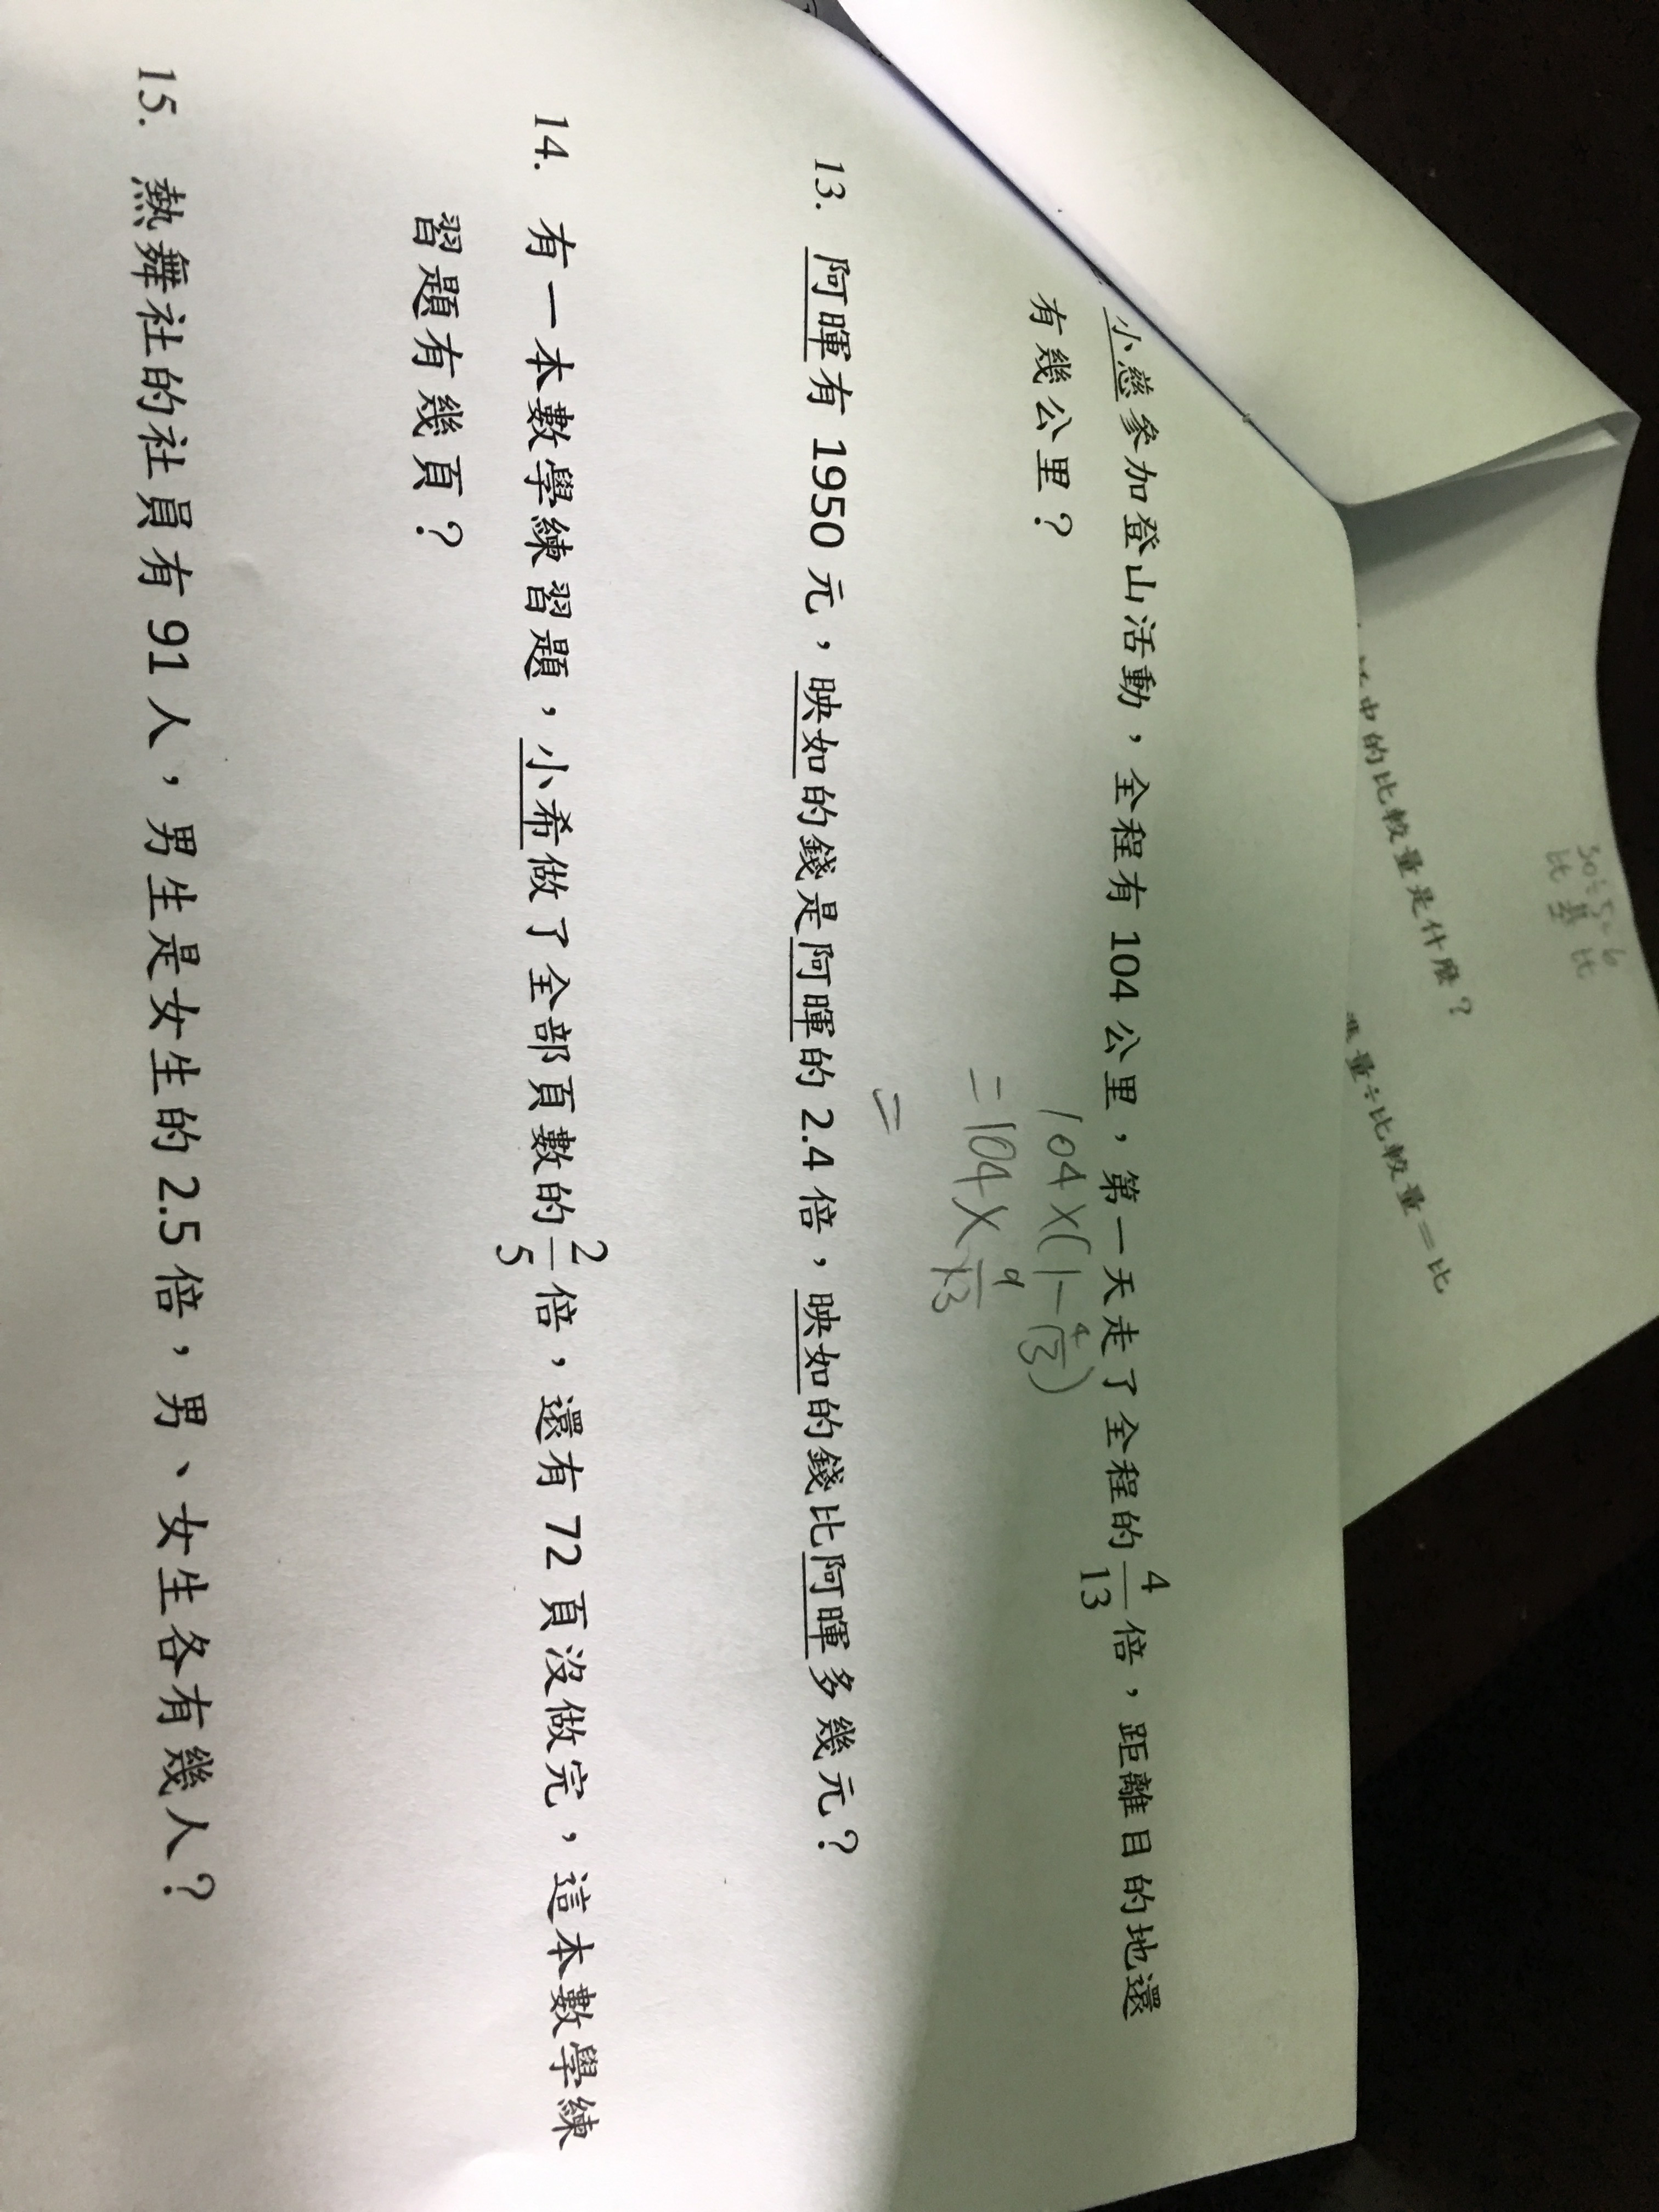 中的比較量是什麼？
量÷比較量＝比
30÷5=6
比 基 比
小慈參加登山活動，全程有 104 公里，第一天走了全程的 4/13 倍，距離目的地還
有幾公里？
104×(1-4/13)
=104×9/13
=
13. 阿暉有 1950 元，映如的錢是阿暉的 2.4 倍，映如的錢比阿暉多幾元？
14. 有一本數學練習題，小希做了全部頁數的 2/5 倍，還有 72 頁沒做完，這本數學練
習題有幾頁？
15. 熱舞社的社員有 91 人，男生是女生的 2.5 倍，男、女生各有幾人？